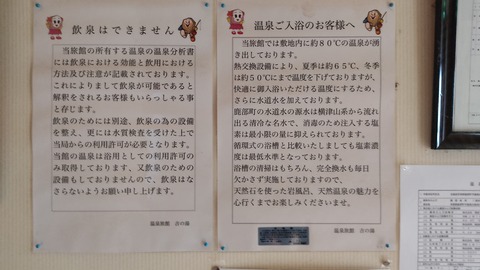 飲泉はできません
当旅館の所有する温泉の温泉分析書
には飲泉における効能と飲用における
方法及び注意が記載されております。
これによりまして飲泉が可能であると
解釈をされるお客様もいらっしゃる事
と存じます。
飲泉のためには別途、飲泉の為の設備
を整え、更には水質検査を受けた上で
当局からの利用許可が必要となります。
当館の温泉は浴用としての利用許可の
み取得しております。又飲泉のための
設備もしておりませんので、飲泉はな
さらないようお願い申し上げます。
温泉旅館 吉の湯
温泉ご入浴のお客様へ
当旅館では敷地内に約８０℃の温泉が湧
き出しております。
熱交換設備により、夏季は約６５℃、冬季
は約５０℃にまで温度を下げておりますが、
快適に御入浴いただける温度にするため、
さらに水道水を加えております。
鹿部町の水道水の源水は横津山系から流れ
出る清冷な名水で、消毒のため注入する塩
素は最小限の量に抑えられております。
循環式の浴槽と比較いたしましても塩素濃
度は最低水準となっております。
浴槽の清掃はもちろん、完全換水も毎日
欠かさず実施しておりますので、
天然石を使った岩風呂、天然温泉の魅力を
心行くまでお楽しみくださいませ。
温泉旅館 吉の湯